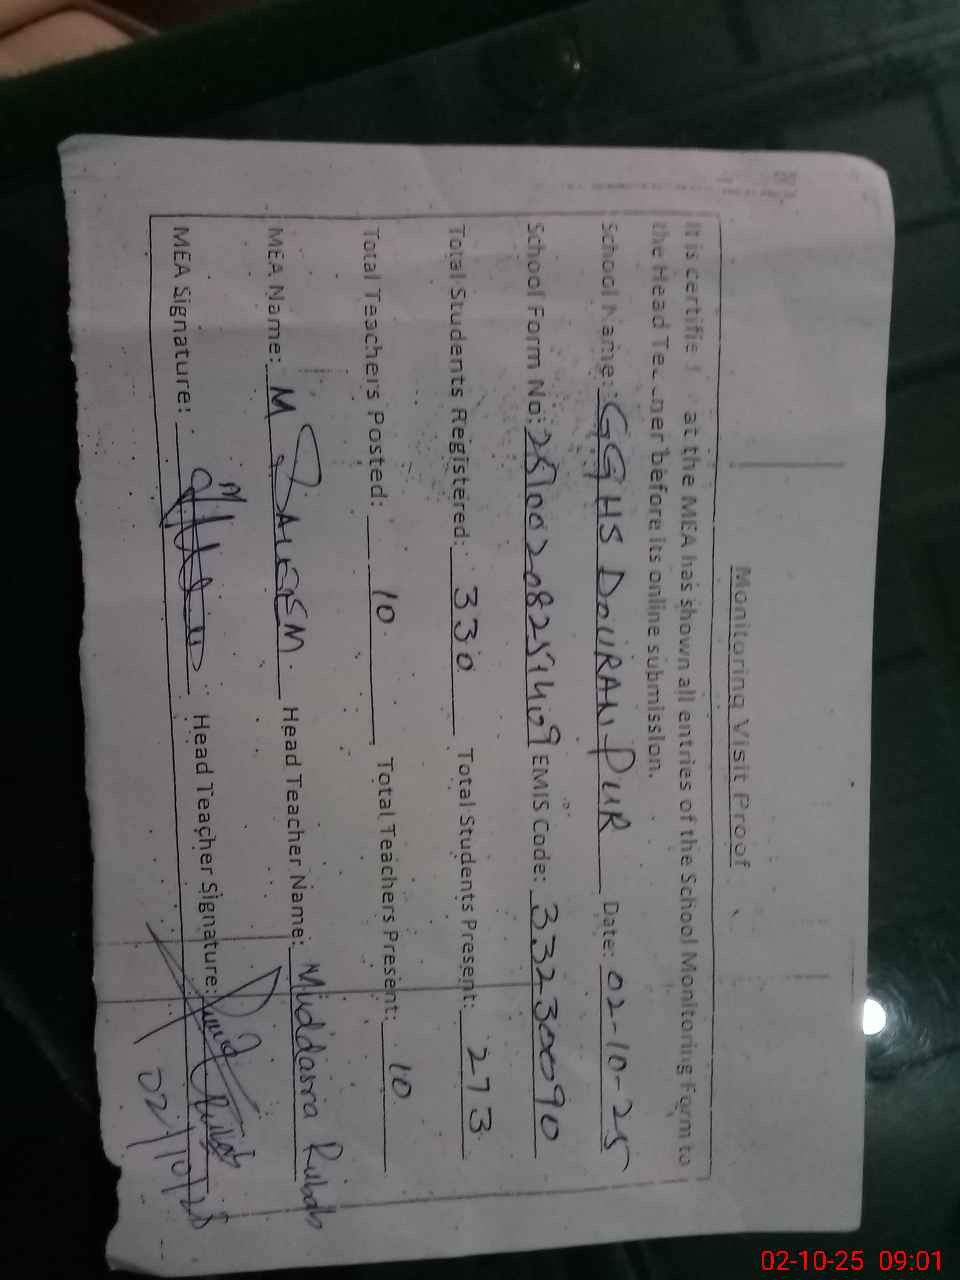 Monitoring Visit Proof
It is certified at the MEA has shown all entries of the School Monitoring Form to
the Head Teacher before its online submission.
School Name: GGHS DOURAN PUR Date: 02-10-25
School Form No: EMIS Code: 33230090
Total Students Registered: 330 Total Students Present: 273
Total Teachers Posted: 10 Total Teachers Present: 10
MEA Name: M SALEEM Head Teacher Name: Muddasra Rubab
MEA Signature: Head Teacher Signature:
02/10/25
02-10-25 09:01